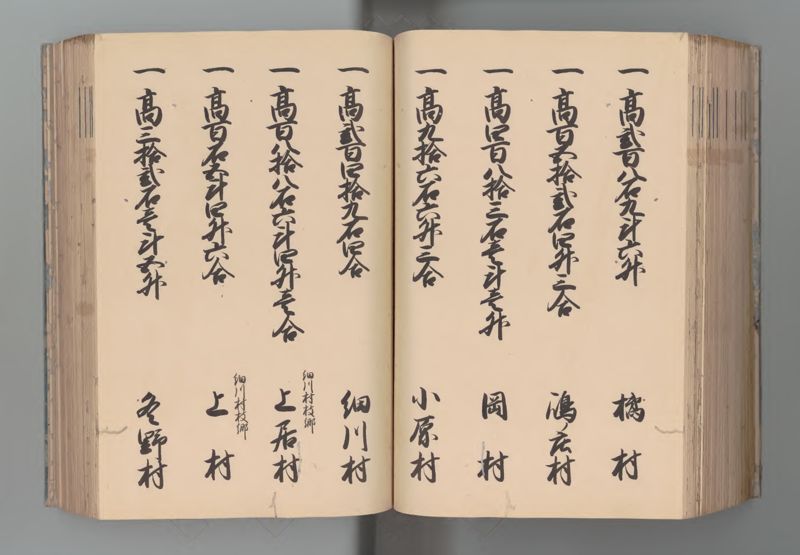 一 高弐百八石九斗六升 橘村
一 高百五拾弐石四升三合 嶋ノ庄村
一 高四百八拾三石壱斗壱升 岡村
一 高九拾六石六升三合 小原村
一 高弐百四拾九石四合 細川村
一 高百八拾八石六斗四升壱合 細川村枝郷 上居村
一 高百石五斗四升六合 細川村枝郷 上村
一 高三拾弐石壱斗五升 冬野村